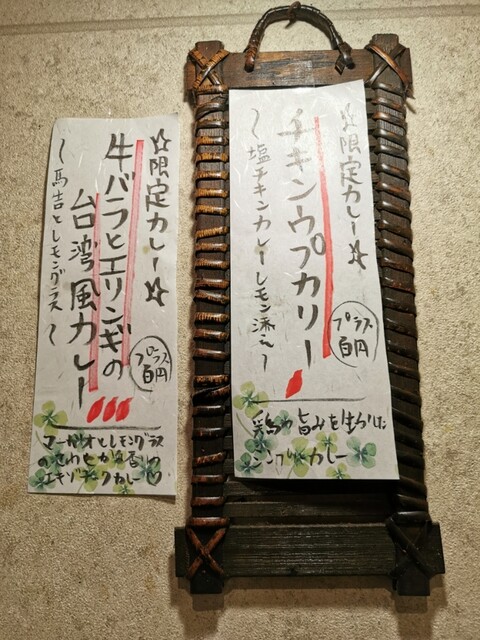 ☆限定カレー☆
チキンウプカリー
~塩チキンカレーレモン添え~
プラス
百円
鶏の旨みを生かした
シンプルカレー
☆限定カレー☆
牛バラとエリンギの
台湾風カレー
~馬告とレモングラス~
プラス
百円
マーガオとレモングラス
のさわやかな香り♡
エキゾチックカレー